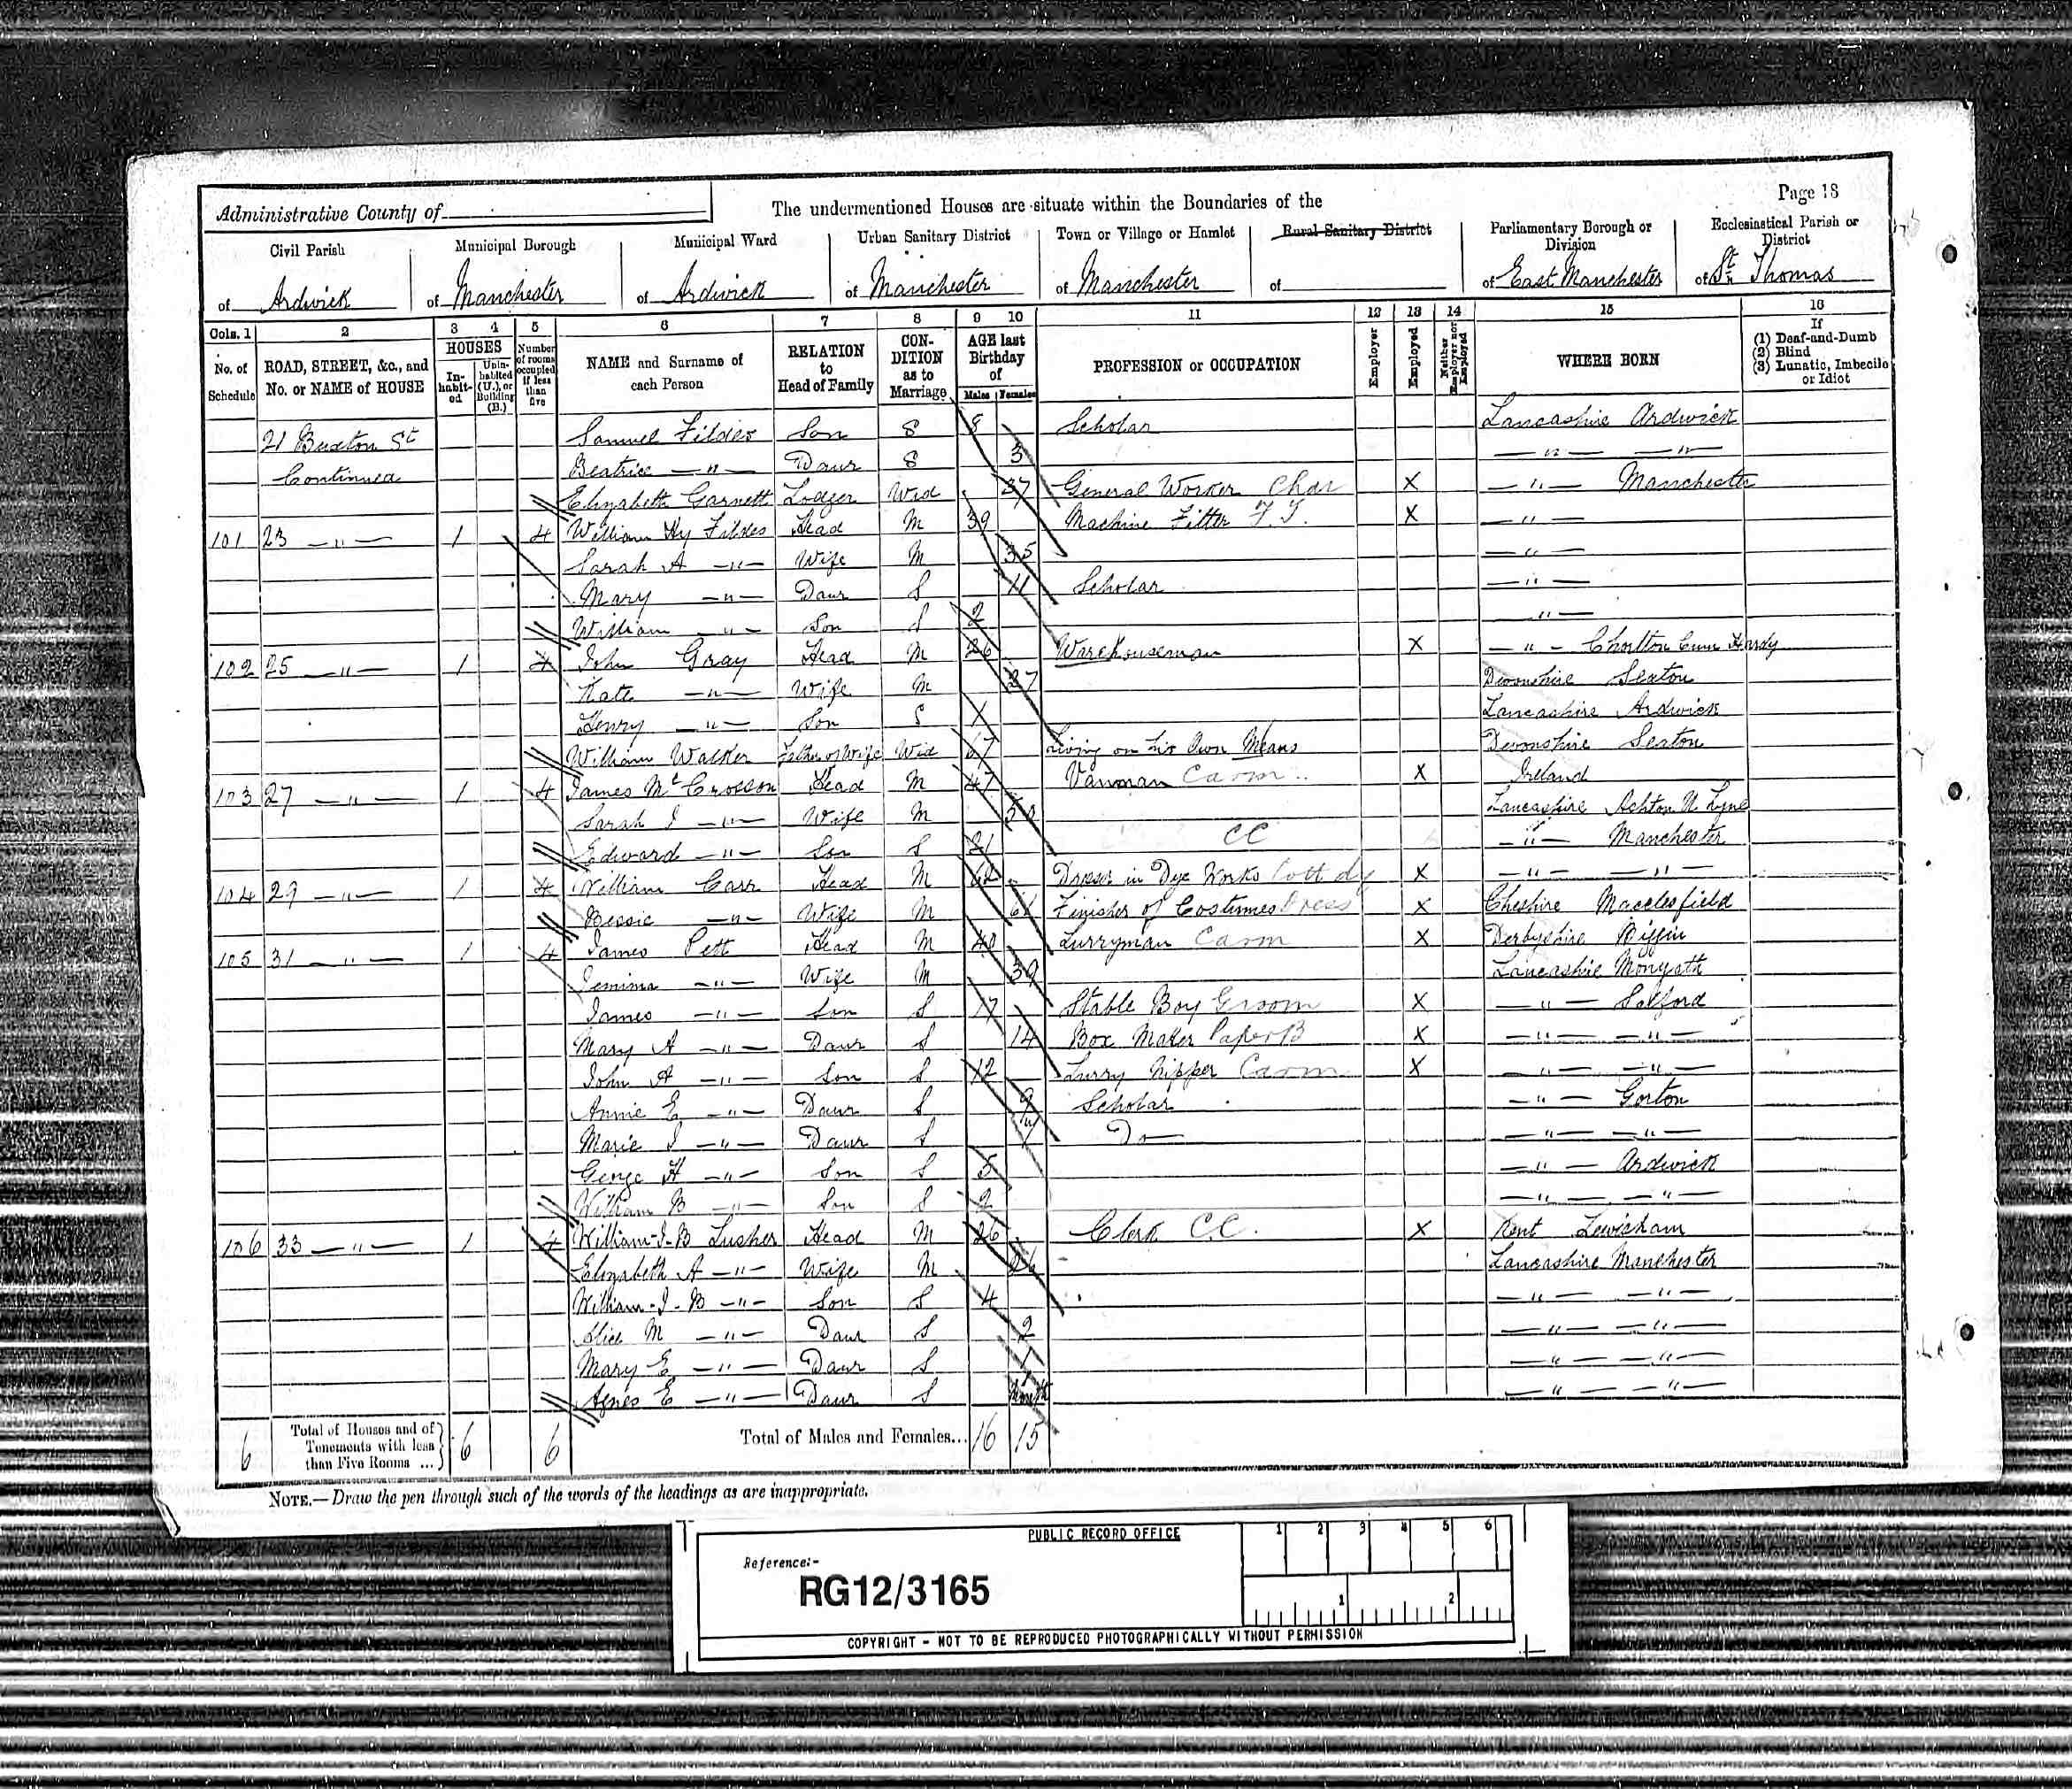 Page 18
Administrative County of
The undermentioned Houses are situate within the Boundaries of the
Civil Parish
of Ardwick
Municipal Borough
of Manchester
Municipal Ward
of Ardwick
Urban Sanitary District
of Manchester
Town or Village or Hamlet
of Manchester
Rural Sanitary District
of
Parliamentary Borough or Division
of East Manchester
Ecclesiastical Parish or District
of St Thomas
Cols. 1 2 3 4 5 6 7 8 9 10 11 12 13 14 15 16
No. of Schedule
ROAD, STREET, &c., and No. or NAME of HOUSE
HOUSES
In-habit-ed
Unin-habited (U.), or Building (B.)
Number of rooms occupied if less than five
NAME and Surname of each Person
RELATION to Head of Family
CON-DITION as to Marriage
AGE last Birthday of
Males Females
PROFESSION or OCCUPATION
Employer
Employed
Neither Employer nor Employed
WHERE BORN
If
(1) Deaf-and-Dumb
(2) Blind
(3) Lunatic, Imbecile or Idiot
21 Buxton St Samuel Fildes Son S 8 Scholar Lancashire Ardwick
Continued Beatrice —"— Daur S 3 —"— —"—
Elizabeth Garnett Lodger Wid 37 General Worker Char X —"— Manchester
101 23 —"— 1 4 William Hy Fildes Head M 39 Machine Fitter F.T. X —"—
Sarah A —"— Wife M 35 —"—
Mary —"— Daur S 11 Scholar —"—
William —"— Son S 2 —"—
102 25 —"— 1 4 John Gray Head M 26 Warehouseman X —"— Chorlton Cum Hardy
Kate —"— Wife M 27 Devonshire Seaton
Henry —"— Son S 1 Lancashire Ardwick
William Walker Father of Wife Wid 67 Living on his Own Means Devonshire Seaton
103 27 —"— 1 4 James Mc Crosson Head M 47 Vanman Carm X Ireland
Sarah J —"— Wife M 50 Lancashire Ashton U Lyne
Edward —"— Son S 21 CC —"— Manchester
104 29 —"— 1 4 William Carr Head M 62 Dresser in Dye Works Cott dy X —"— —"—
Bessie —"— Wife M 61 Finisher of Costumes Dress X Cheshire Macclesfield
105 31 —"— 1 4 James Pett Head M 40 Lurryman Carm X Derbyshire
Jemima —"— Wife M 39 Lancashire
James —"— Son S 17 Stable Boy Groom X —"— Salford
Mary A —"— Daur S 14 Box Maker Paper B X —"— —"—
John A —"— Son S 12 Lurry Nipper Carm X —"— —"—
Annie E —"— Daur S 9 Scholar —"— Gorton
Marie J —"— Daur S 7 Do —"— —"—
George H —"— Son S 5 —"— Ardwick
William B —"— Son S 2 —"— —"—
106 33 —"— 1 4 William-J-B Lusher Head M 26 Clerk C.C. X Kent Lewisham
Elizabeth A —"— Wife M 26 Lancashire Manchester
William-J-B —"— Son S 4 —"— —"—
Alice M —"— Daur S 2 —"— —"—
Mary E —"— Daur S 1 —"— —"—
Agnes E —"— Daur S —"— —"—
6 Total of Houses and of Tenements with less than Five Rooms ... 6 6 Total of Males and Females... 16 15
NOTE.—Draw the pen through such of the words of the headings as are inappropriate.
PUBLIC RECORD OFFICE
1 2 3 4 5 6
Reference:-
RG12/3165
1 2
COPYRIGHT - NOT TO BE REPRODUCED PHOTOGRAPHICALLY WITHOUT PERMISSION